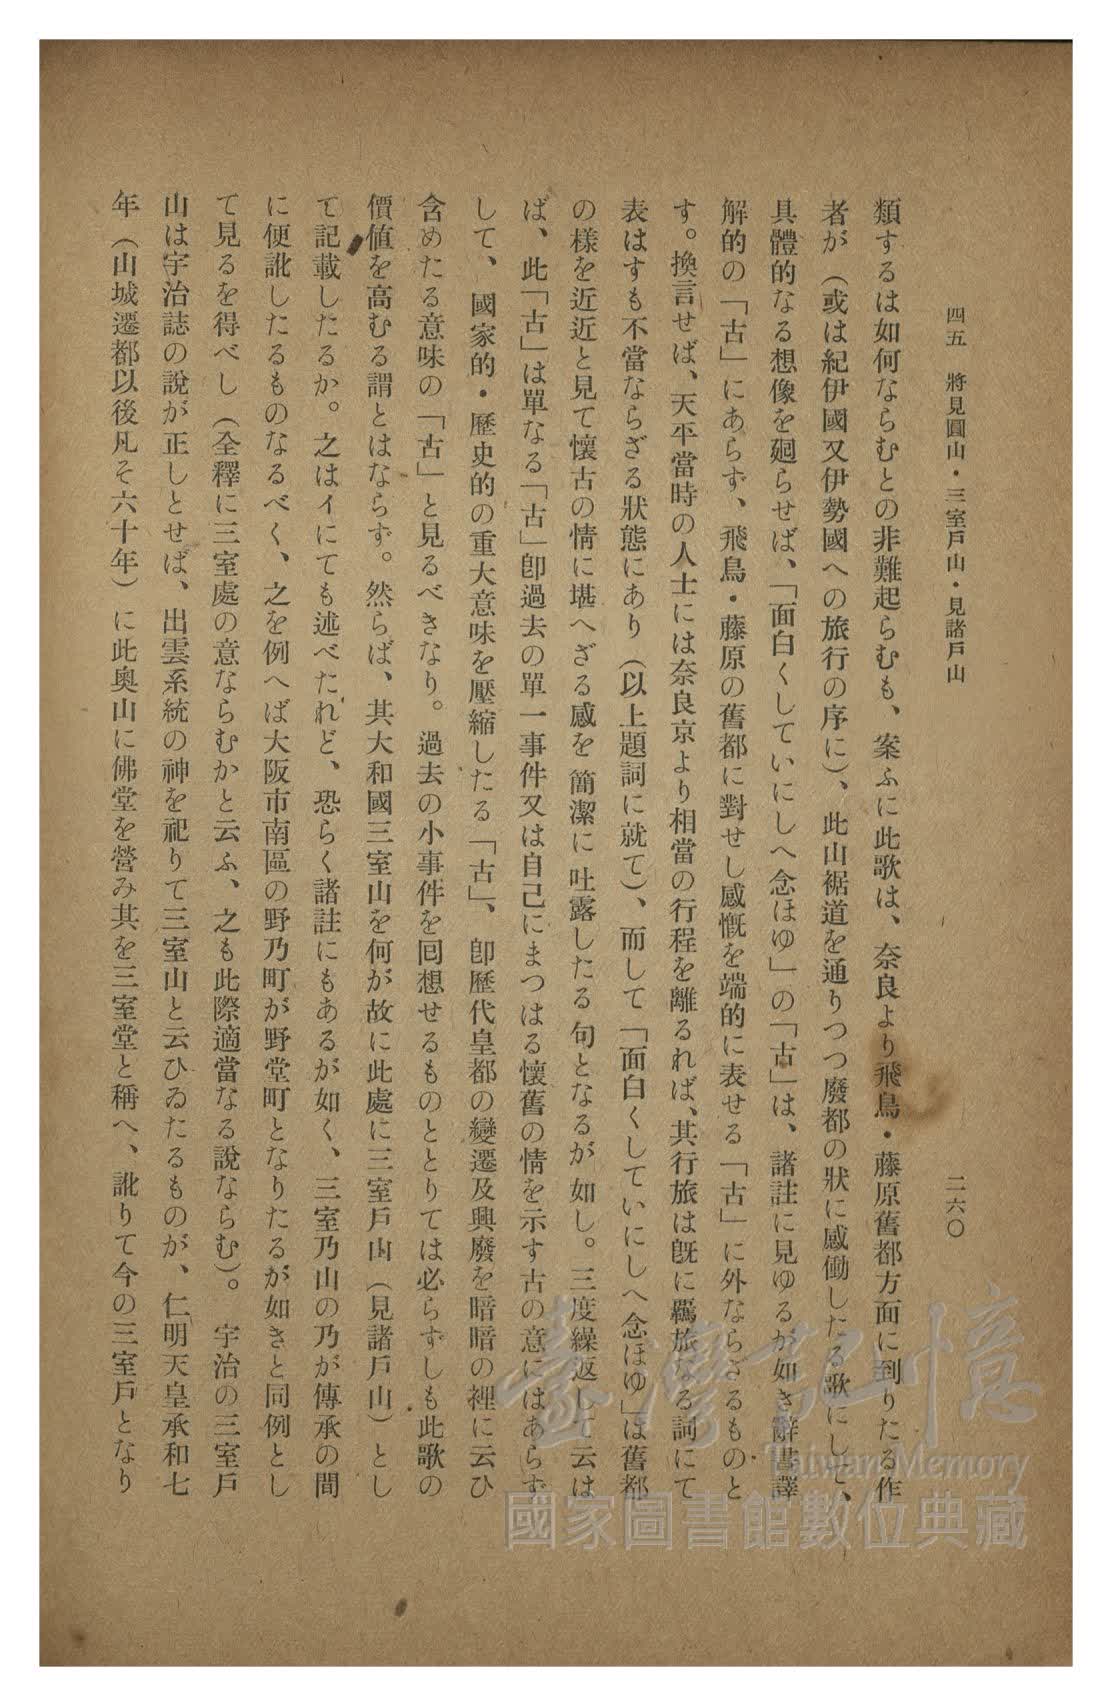 四五　將見圓山・三室戶山・見諸戶山　二六〇
類するは如何ならむとの非難起らむも、案ふに此歌は、奈良より飛鳥・藤原舊都方面に到りたる作
者が（或は紀伊國又伊勢國への旅行の序に）、此山裾道を通りつつ廢都の狀に感働したる歌にして、
具體的なる想像を廻らせば、「面白くしていにしへ念ほゆ」の「古」は、諸註に見ゆるが如き辭書譯
解的の「古」にあらず、飛鳥・藤原の舊都に對せし感慨を端的に表せる「古」に外ならざるものと
す。換言せば、天平當時の人士には奈良京より相當の行程を離るれば、其行旅は既に羈旅なる詞にて
表はすも不當ならざる狀態にあり（以上題詞に就て）、而して「面白くしていにしへ念ほゆ」は舊都
の樣を近近と見て懷古の情に堪へざる感を簡潔に吐露したる句となるが如し。三度繰返して云は
ば、此「古」は單なる「古」卽過去の單一事件又は自己にまつはる懷舊の情を示す古の意にはあらず
して、國家的・歷史的の重大意味を壓縮したる「古」、卽歷代皇都の變遷及興廢を暗暗の裡に云ひ
含めたる意味の「古」と見るべきなり。過去の小事件を囘想せるものととりては必らずしも此歌の
價値を高むる謂とはならず。然らば、其大和國三室山を何が故に此處に三室戶山（見諸戶山）とし
て記載したるか。之はイにても述べたれど、恐らく諸註にもあるが如く、三室乃山の乃が傳承の間
に便訛したるものなるべく、之を例へば大阪市南區の野乃町が野堂町となりたるが如きと同例とし
て見るを得べし（全釋に三室處の意ならむかと云ふ、之も此際適當なる說ならむ）。宇治の三室戶
山は宇治誌の說が正しとせば、出雲系統の神を祀りて三室山と云ひゐたるものが、仁明天皇承和七
年（山城遷都以後凡そ六十年）に此奧山に佛堂を營み其を三室堂と稱へ、訛りて今の三室戶となり
臺灣記憶
Taiwan Memory
國家圖書館數位典藏